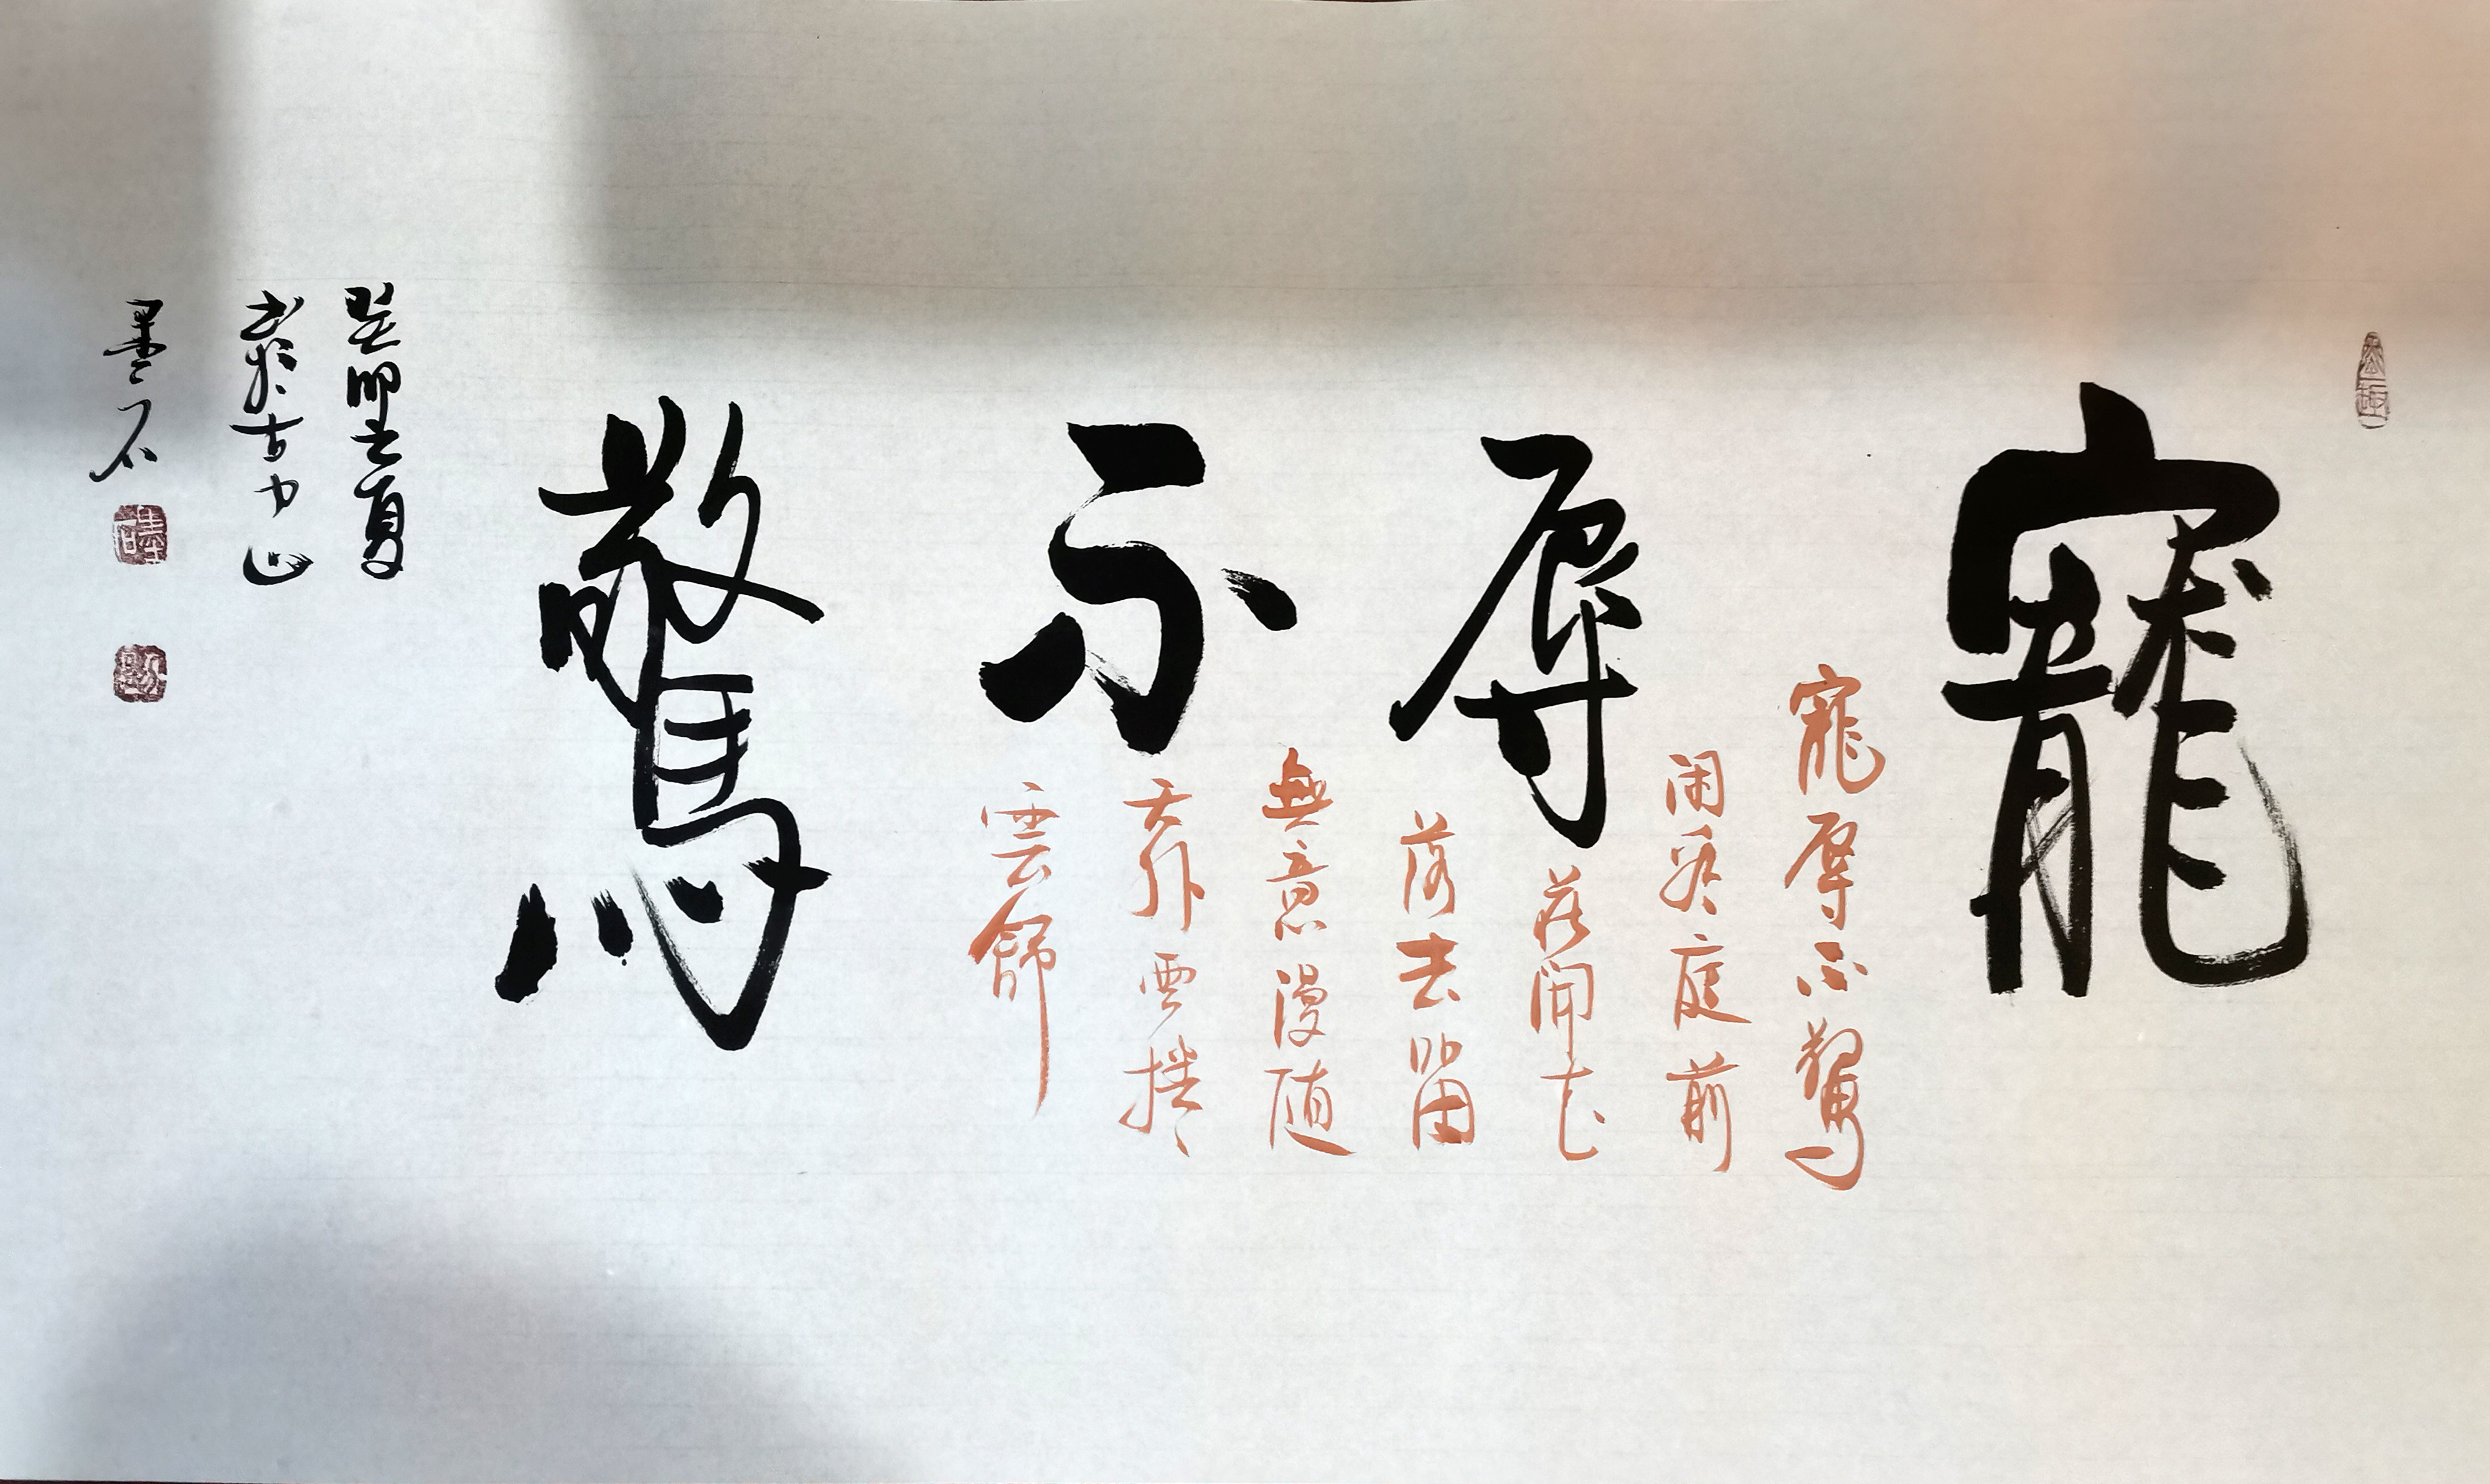 寵辱不驚
寵辱不驚
閑看庭前
花開花
落去留
無意漫随
天外雲捲
雲舒
癸卯之夏
書於古中山
墨石